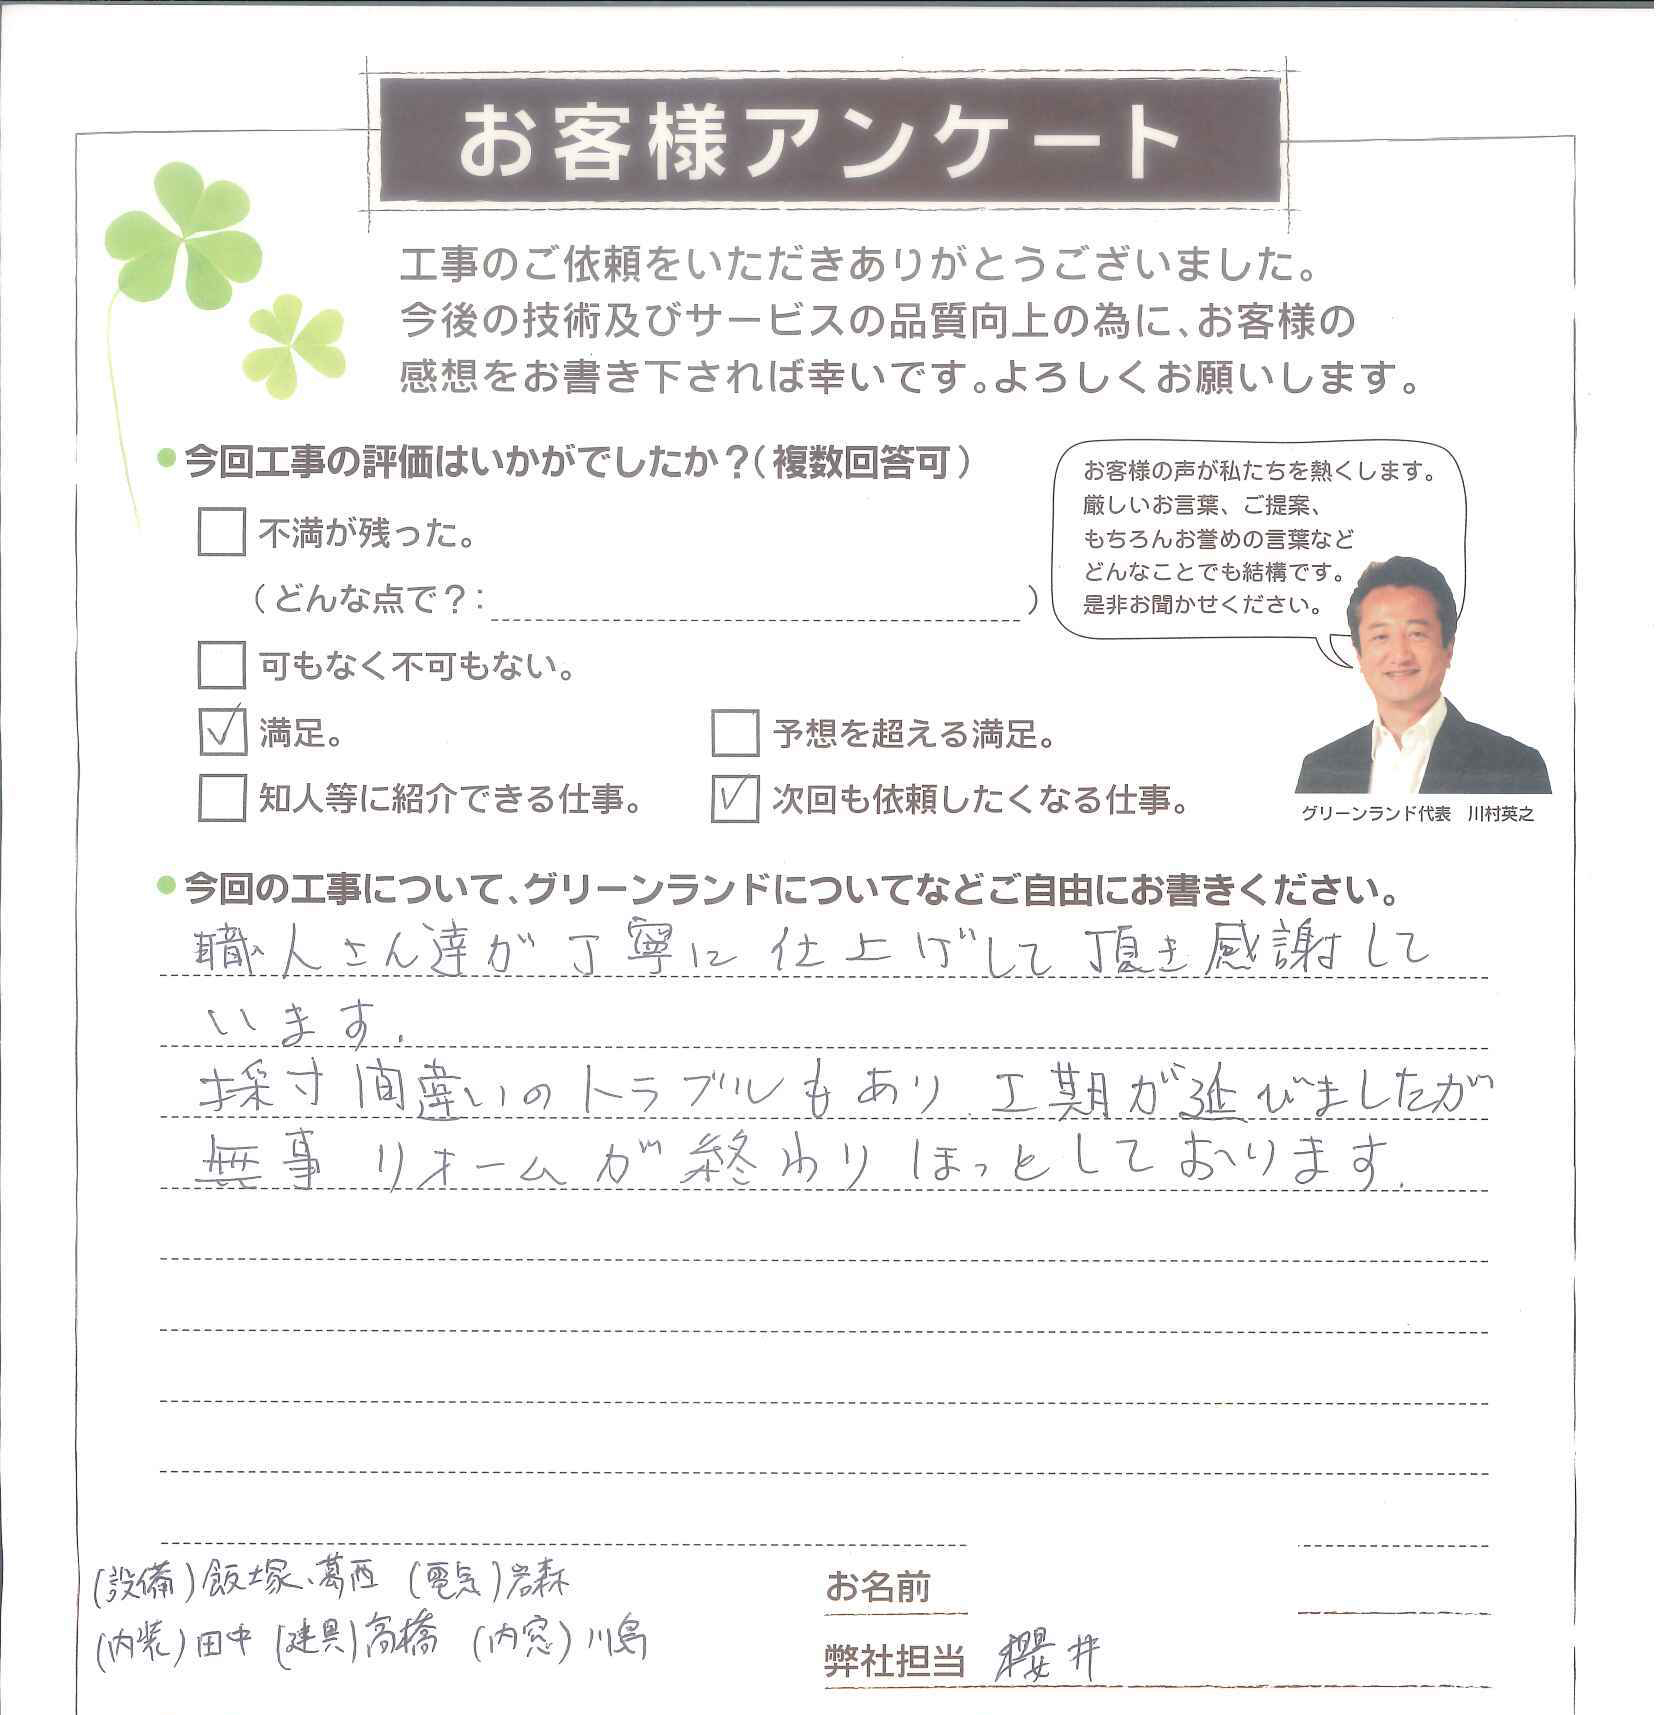 お客様アンケート
工事のご依頼をいただきありがとうございました。
今後の技術及びサービスの品質向上の為に、お客様の
感想をお書き下されば幸いです。よろしくお願いします。
今回工事の評価はいかがでしたか？（複数回答可）
不満が残った。
（どんな点で？：　　　）
可もなく不可もない。
満足。
予想を超える満足。
知人等に紹介できる仕事。
次回も依頼したくなる仕事。
お客様の声が私たちを熱くします。
厳しいお言葉、ご提案、
もちろんお誉めの言葉など
どんなことでも結構です。
是非お聞かせください。
グリーンランド代表　川村英之
今回の工事について、グリーンランドについてなどご自由にお書きください。
職人さん達が丁寧に仕上げして頂き感謝して
います.
採寸間違いのトラブルもあり、工期が延びましたが
無事リォームが終わりほっとしております.
(設備)飯塚、葛西 (電気)岩森
(内装)田中 (建具)高橋 (内窓)川島
お名前
弊社担当 櫻井